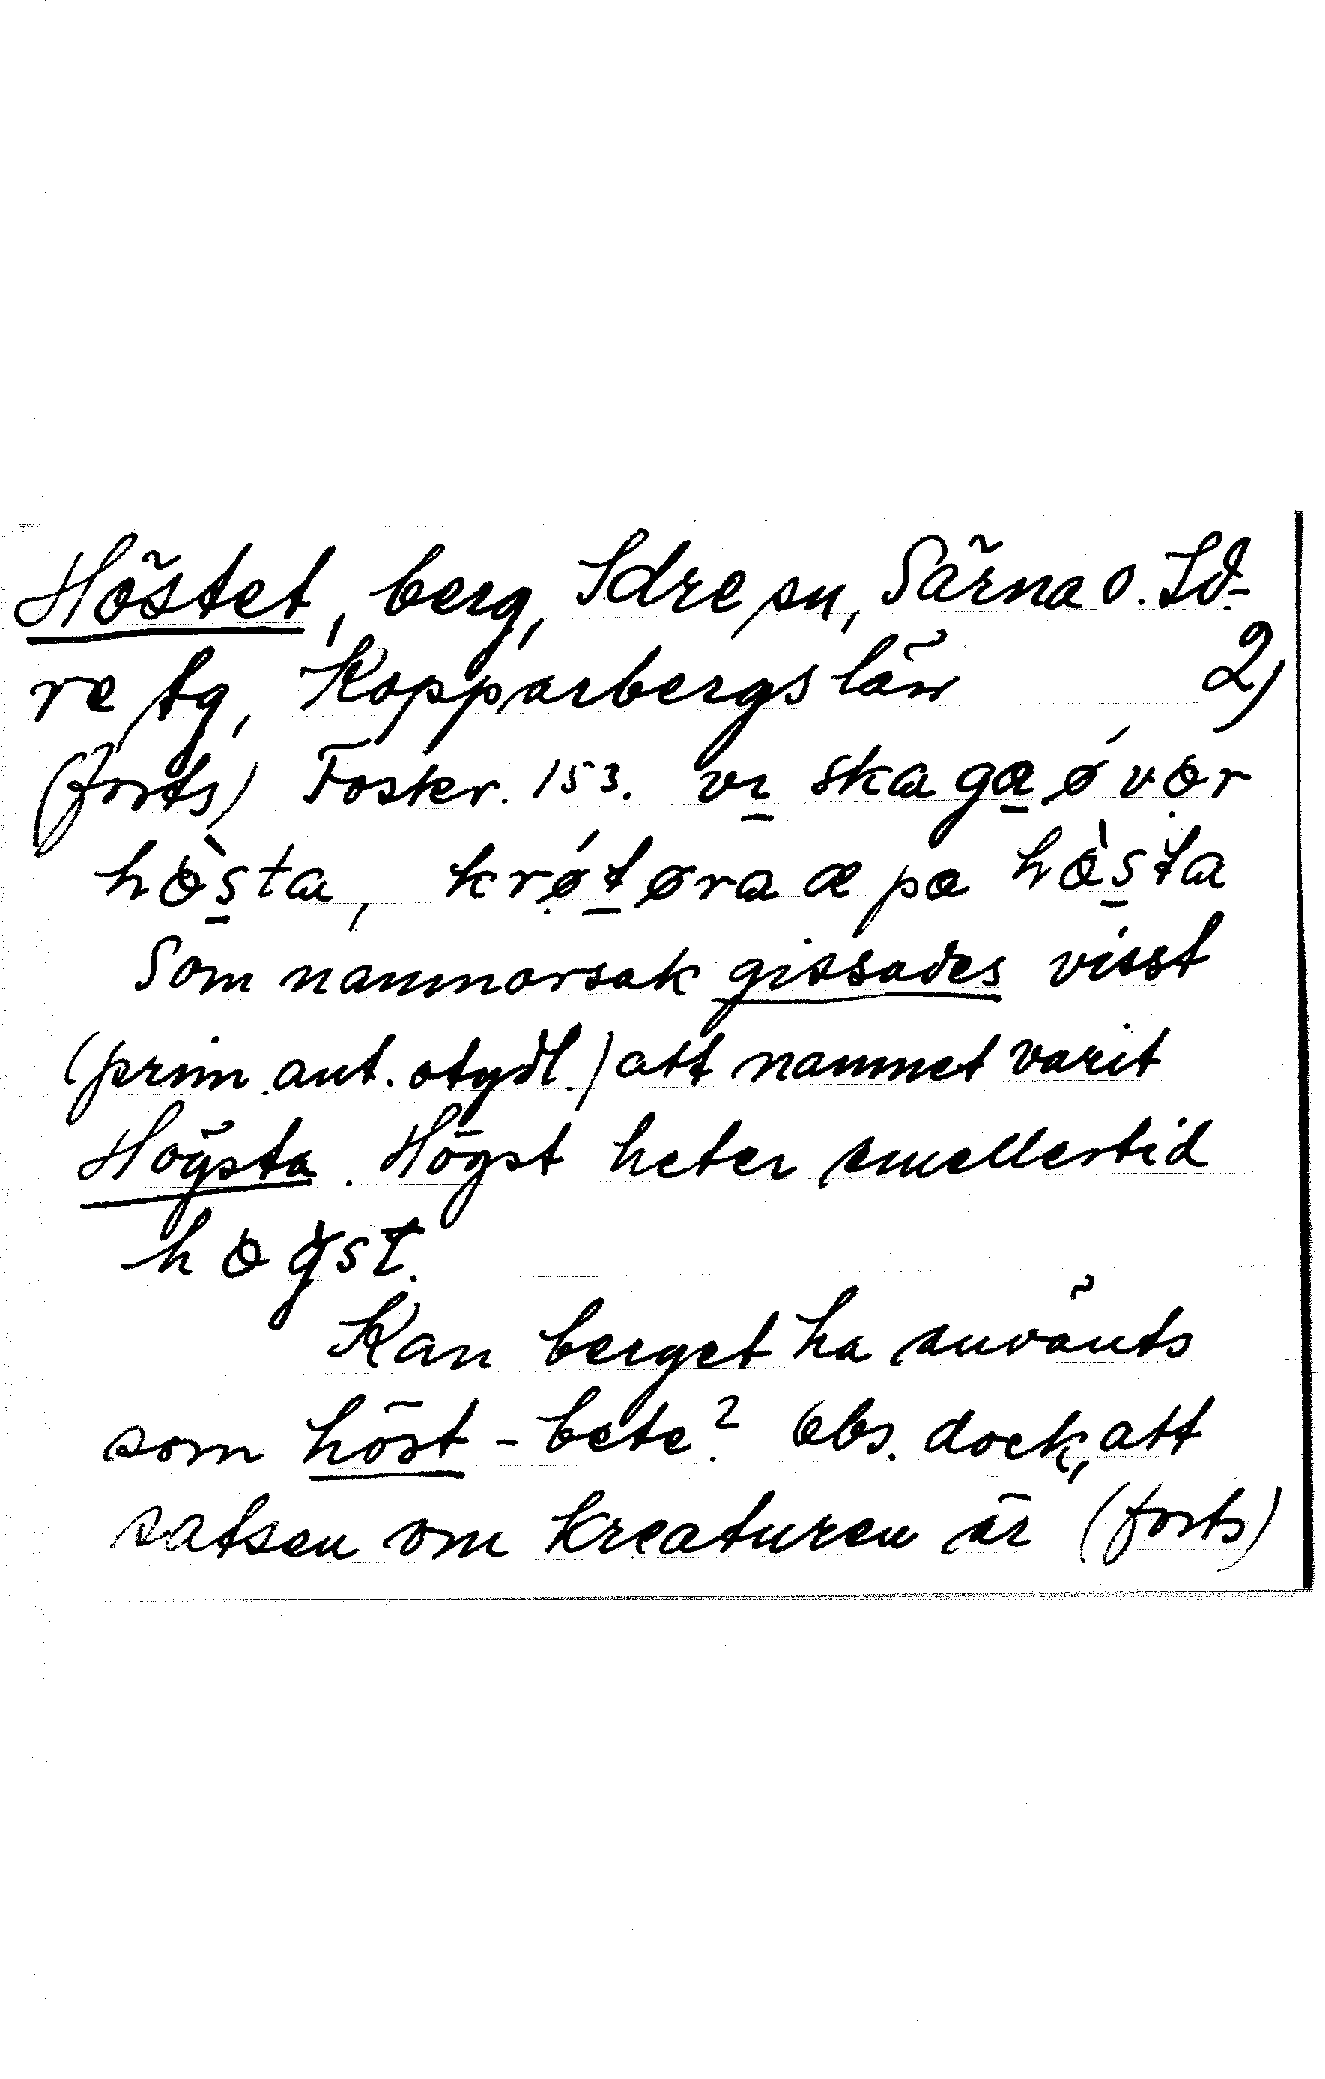 Höstet, berg, Idre sn, Särna o. Id-
re tg, Kopparbergs län 2)
(forts) Foskr. 153. vı ska gɑ ǿvər
hө̀sta, krǿtøra æ pɑ hө̀sta
Som namnorsak gissades visst
(prim. ant. otydl.) att namnet varit
Högsta. Högst heter emellertid
hөgst.
Kan berget ha använts
som höst-bete? Obs. dock, att
satsen om kreaturen är (forts)